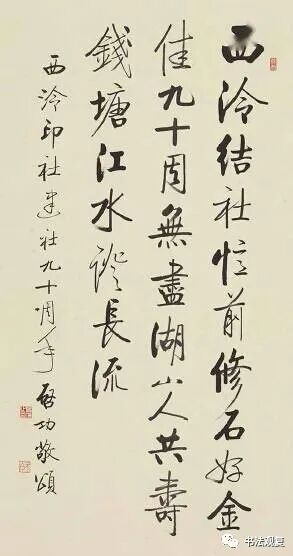 西泠結社憶前修石好金
佳九十周無盡湖山人共壽
錢塘江水證長流
西泠印社建社九十周年 啓功敬頌
书法观复